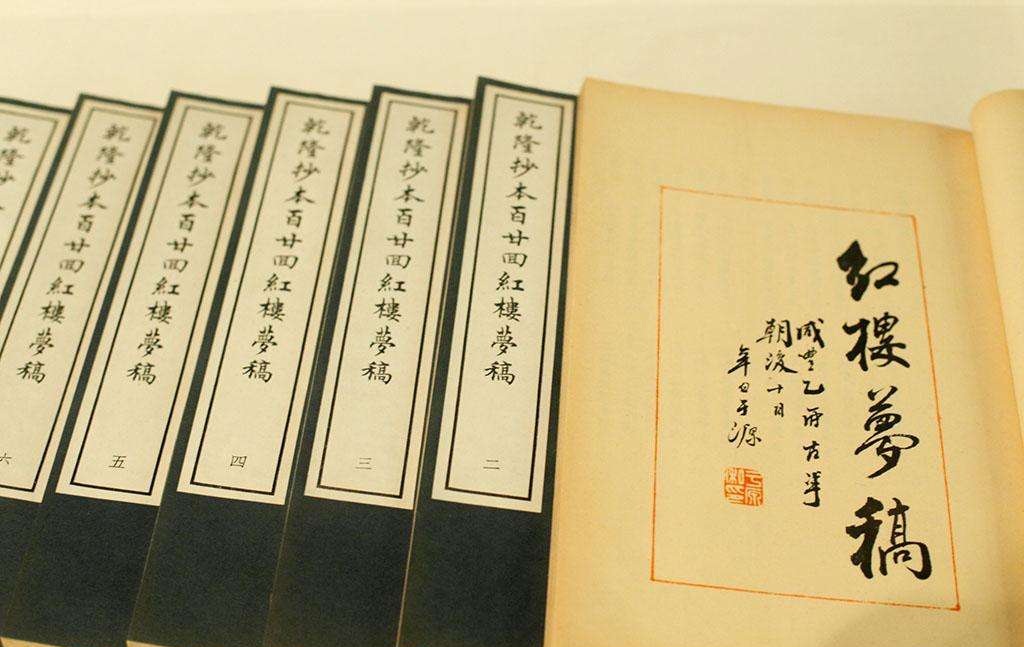 紅樓夢稿
咸豐乙卯古華
朝後十日
辛白于源
乾隆抄本百廿回紅樓夢稿
二
乾隆抄本百廿回紅樓夢稿
三
乾隆抄本百廿回紅樓夢稿
四
乾隆抄本百廿回紅樓夢稿
五
乾隆抄
六